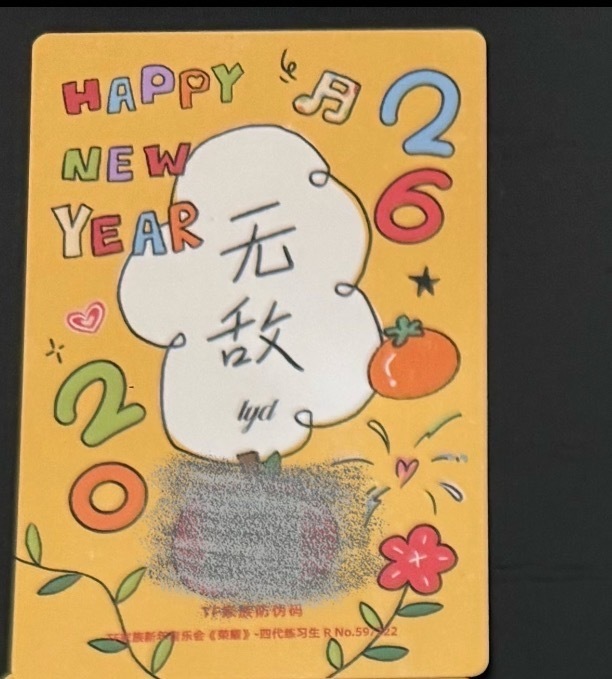 HAPPY
26
NEW
YEAR
无
敌
lyd
20
TF家族防伪码
TF家族新年音乐会《荣耀》-四代练习生 R No.59/122